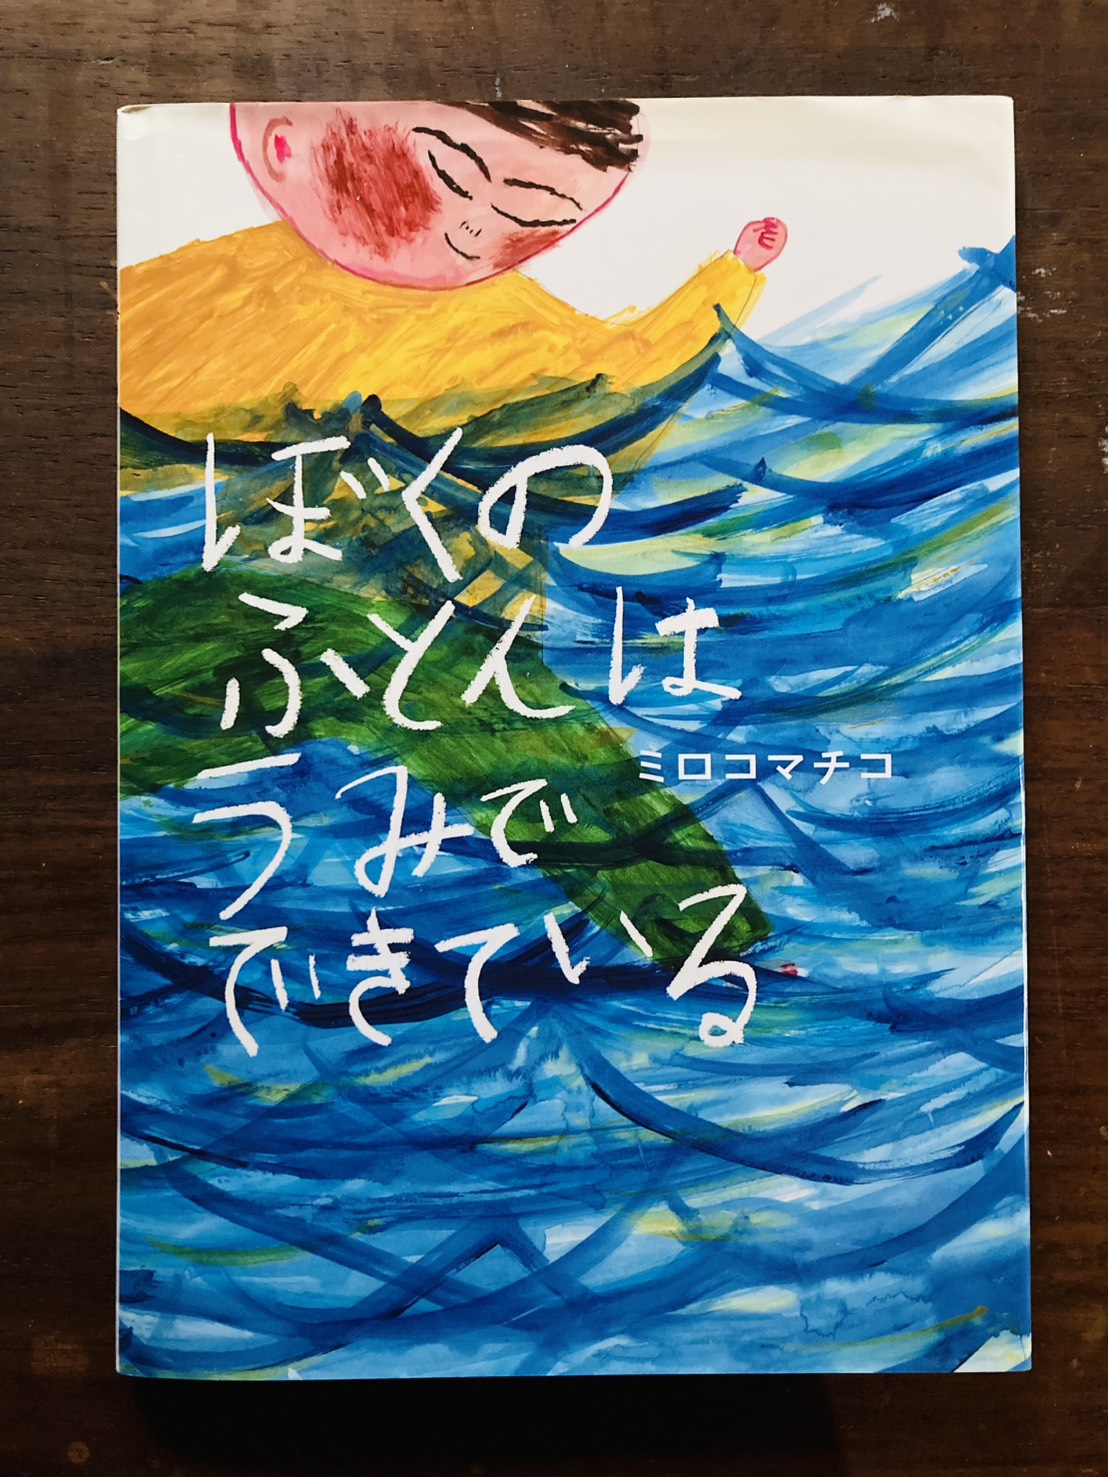 ぼくの
ふとんは
うみで
できている
ミロコマチコ